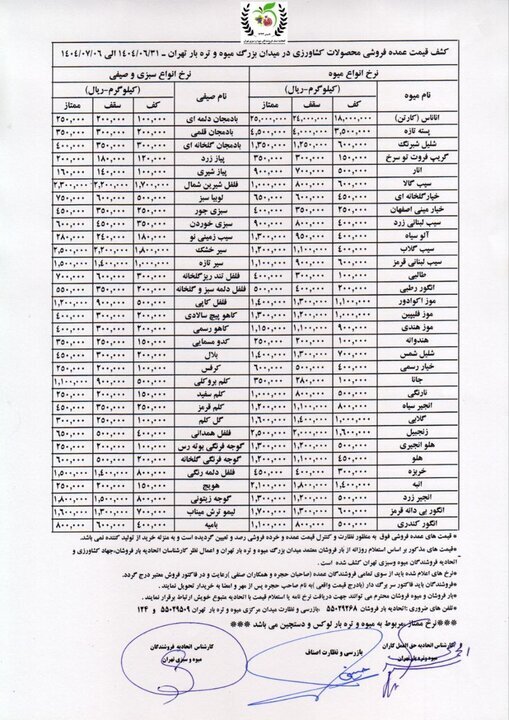 کشف قیمت عمده فروشی محصولات کشاورزی در میدان بزرگ میوه و تره بار تهران ــ ۱۴۰۴/۰۶/۳۱ الی ۱۴۰۴/۰۷/۰۶
نرخ انواع میوه نرخ انواع سبزی و صیفی
نام میوه (کیلوگرم-ریال) نام صیفی (کیلوگرم-ریال)
کف سقف ممتاز کف سقف ممتاز
اناناس (کارتن) ۱۸,۰۰۰,۰۰۰ ۲۴,۰۰۰,۰۰۰ ۲۵,۰۰۰,۰۰۰ بادمجان دلمه ای ۱۰۰,۰۰۰ ۲۰۰,۰۰۰ ۲۵۰,۰۰۰
پسته تازه ۳,۵۰۰,۰۰۰ ۴,۰۰۰,۰۰۰ ۴,۵۰۰,۰۰۰ بادمجان قلمی ۲۰۰,۰۰۰ ۳۰۰,۰۰۰ ۳۵۰,۰۰۰
شلیل شبرنگ ۶۰۰,۰۰۰ ۱,۲۵۰,۰۰۰ ۱,۳۵۰,۰۰۰ بادمجان گلخانه ای ۳۰۰,۰۰۰ ۳۵۰,۰۰۰ ۴۰۰,۰۰۰
گریپ فروت تو سرخ ۱۵۰,۰۰۰ ۳۰۰,۰۰۰ ۳۵۰,۰۰۰ پیاز زرد ۱۲۰,۰۰۰ ۱۸۰,۰۰۰ ۲۰۰,۰۰۰
انار ۵۰۰,۰۰۰ ۷۰۰,۰۰۰ ۹۰۰,۰۰۰ پیاز شیری ۱۰۰,۰۰۰ ۱۴۰,۰۰۰ ۱۶۰,۰۰۰
سیب گالا ۶۰۰,۰۰۰ ۸۰۰,۰۰۰ ۱,۰۰۰,۰۰۰ فلفل شیرین شمال ۱,۷۰۰,۰۰۰ ۲,۲۰۰,۰۰۰ ۲,۳۰۰,۰۰۰
خیارگلخانه ای لوبیا سبز ۵۰۰,۰۰۰ ۶۰۰,۰۰۰ ۷۵۰,۰۰۰
خیار مینی اصفهان ۲۰۰,۰۰۰ ۳۵۰,۰۰۰ ۴۰۰,۰۰۰ سبزی جور ۲۵۰,۰۰۰ ۳۵۰,۰۰۰ ۴۵۰,۰۰۰
سیب لبنانی زرد ۴۰۰,۰۰۰ ۸۰۰,۰۰۰ ۹۰۰,۰۰۰ سبزی خوردن ۳۵۰,۰۰۰ ۴۰۰,۰۰۰
آلو سیاه ۴۰۰,۰۰۰ ۹۵۰,۰۰۰ ۱,۳۰۰,۰۰۰ سیب زمینی نو ۱۸۰,۰۰۰ ۲۴۰,۰۰۰ ۲۸۰,۰۰۰
سیب گلاب ۴۰۰,۰۰۰ ۱,۱۰۰,۰۰۰ ۱,۲۰۰,۰۰۰ سیر خشک ۱,۸۰۰,۰۰۰ ۲,۲۰۰,۰۰۰ ۲,۵۰۰,۰۰۰
سیب لبنانی قرمز ۶۰۰,۰۰۰ ۱,۰۰۰,۰۰۰ ۱,۲۰۰,۰۰۰ سیر تازه ۱,۰۰۰,۰۰۰ ۱,۴۰۰,۰۰۰ ۱,۵۰۰,۰۰۰
طالبی ۱۰۰,۰۰۰ ۳۰۰,۰۰۰ ۴۰۰,۰۰۰ فلفل تند ریزگلخانه ۳۰۰,۰۰۰ ۶۰۰,۰۰۰ ۷۰۰,۰۰۰
انگور رطبی ۲۰۰,۰۰۰ ۴۰۰,۰۰۰ ۵۰۰,۰۰۰ فلفل دلمه سبز و گلخانه ۲۰۰,۰۰۰ ۳۵۰,۰۰۰ ۵۵۰,۰۰۰
موز اکوادور ۱,۱۰۰,۰۰۰ ۱,۳۰۰,۰۰۰ ۱,۴۰۰,۰۰۰ فلفل کاپی ۵۰۰,۰۰۰ ۹۰۰,۰۰۰ ۱,۲۰۰,۰۰۰
موز فلیپین ۱,۱۰۰,۰۰۰ ۱,۲۰۰,۰۰۰ ۱,۳۰۰,۰۰۰ کاهو پیچ سالادی ۲۰۰,۰۰۰ ۳۰۰,۰۰۰ ۴۰۰,۰۰۰
موز هندی ۹۰۰,۰۰۰ ۱,۱۰۰,۰۰۰ ۱,۱۵۰,۰۰۰ کاهو رسمی ۲۰۰,۰۰۰ ۴۰۰,۰۰۰ ۴۵۰,۰۰۰
هندوانه ۱۰۰,۰۰۰ ۲۰۰,۰۰۰ ۲۵۰,۰۰۰ کدو مسمایی ۱۵۰,۰۰۰ ۲۵۰,۰۰۰ ۳۵۰,۰۰۰
شلیل شمس ۷۰۰,۰۰۰ ۱,۳۰۰,۰۰۰ ۱,۴۰۰,۰۰۰ بلال ۲۰۰,۰۰۰ ۳۰۰,۰۰۰ ۴۵۰,۰۰۰
خیار رسمی ۴۰۰,۰۰۰ ۵۰۰,۰۰۰ ۶۰۰,۰۰۰ کرفس ۱۰۰,۰۰۰ ۲۰۰,۰۰۰ ۲۵۰,۰۰۰
جانا ۱۰۰,۰۰۰ ۲۸۰,۰۰۰ ۳۵۰,۰۰۰ کلم بروکلی ۵۰۰,۰۰۰ ۹۰۰,۰۰۰ ۱,۱۰۰,۰۰۰
نارنگی ۵۰۰,۰۰۰ ۸۰۰,۰۰۰ ۹۰۰,۰۰۰ کلم سفید ۱۵۰,۰۰۰ ۲۰۰,۰۰۰
انجیر سیاه ۸۰۰,۰۰۰ ۱,۱۰۰,۰۰۰ ۱,۲۰۰,۰۰۰ کلم قرمز ۲۵۰,۰۰۰ ۳۵۰,۰۰۰ ۴۵۰,۰۰۰
گلابی ۱,۶۰۰,۰۰۰ گل کلم ۲۰۰,۰۰۰ ۳۰۰,۰۰۰ ۴۰۰,۰۰۰
زنجبیل ۱,۲۰۰,۰۰۰ ۲,۰۰۰,۰۰۰ ۲,۵۰۰,۰۰۰ فلفل همدانی ۴۰۰,۰۰۰ ۵۰۰,۰۰۰ ۶۵۰,۰۰۰
هلو انجیری ۵۰۰,۰۰۰ ۱,۲۰۰,۰۰۰ ۱,۳۰۰,۰۰۰ گوجه فرنگی بوته رس ۱۰۰,۰۰۰ ۲۰۰,۰۰۰ ۲۵۰,۰۰۰
هلو ۴۰۰,۰۰۰ ۱,۱۰۰,۰۰۰ ۱,۲۰۰,۰۰۰ گوجه فرنگی گلخانه ۲۰۰,۰۰۰ ۵۰۰,۰۰۰ ۶۰۰,۰۰۰
خربزه ۳۰۰,۰۰۰ ۴۰۰,۰۰۰ ۴۵۰,۰۰۰ فلفل دلمه رنگی ۸۰۰,۰۰۰ ۱,۴۰۰,۰۰۰ ۱,۵۰۰,۰۰۰
انبه ۱,۴۰۰,۰۰۰ ۱,۸۰۰,۰۰۰ ۲,۱۰۰,۰۰۰ هویج ۱۵۰,۰۰۰ ۲۰۰,۰۰۰ ۲۵۰,۰۰۰
انجیر زرد ۵۰۰,۰۰۰ ۱,۲۰۰,۰۰۰ ۱,۳۰۰,۰۰۰ گوجه زیتونی ۱,۰۰۰,۰۰۰ ۱,۵۰۰,۰۰۰ ۱,۸۰۰,۰۰۰
انگور بی دانه قرمز ۷۰۰,۰۰۰ ۱,۲۰۰,۰۰۰ لیمو ترش میناب ۱,۳۰۰,۰۰۰ ۱,۶۰۰,۰۰۰
انگور کندری ۵۰۰,۰۰۰ ۸۰۰,۰۰۰ ۹۰۰,۰۰۰ بامیه ۴۰۰,۰۰۰ ۶۰۰,۰۰۰ ۸۰۰,۰۰۰
* قیمت های عمده فروشی فوق به منظور نظارت و کنترل قیمت عمده و خرده فروشی رصد و تعیین گردیده است و به منزله خرید از تولید کننده نمی باشد.
* قیمت های مذکور بر اساس استعلام روزانه از بار فروشان معتمد میدان بزرگ میوه و تره بار تهران و اعمال نظر کارشناسان اتحادیه بار فروشان،جهاد کشاورزی و
اتحادیه فروشندگان میوه وسبزی تهران کشف شده است.
*نرخ های اعلام شده باید از سوی تمامی فروشندگان عمده (صاحبان حجره و همکاران صفی) رعایت و در فاکتور فروش معتبر درج گردد.
*فروشندگان باید فاکتور سر برگ دار (بادرج قیمت واقعی) به نام صاحب حجره پس از مهر و امضا به خریدار تحویل نمایند.
*بار فروشان و میوه فروشان محترم می توانند جهت دریافت نرخ نامه یا استعلام قیمت با اتحادیه متبوع خویش ارتباط برقرار نمایند.
*تلفن های ضروری :اتحادیه بار فروشان ۵۵۰۲۹۲۶۸ ـ بازرسی و نظارت میدان مرکزی میوه و تره بار تهران ۵۵۰۲۹۵۰۹ و ۱۲۴
***نرخ ممتاز،مربوط به میوه و تره بار لوکس و دستچین می باشد ***
کارشناس اتحادیه حق العمل کاران
میوه و تره بار تهران
بازرسی و نظارت اصناف
کارشناس اتحادیه فروشندگان
میوه و سبزی تهران